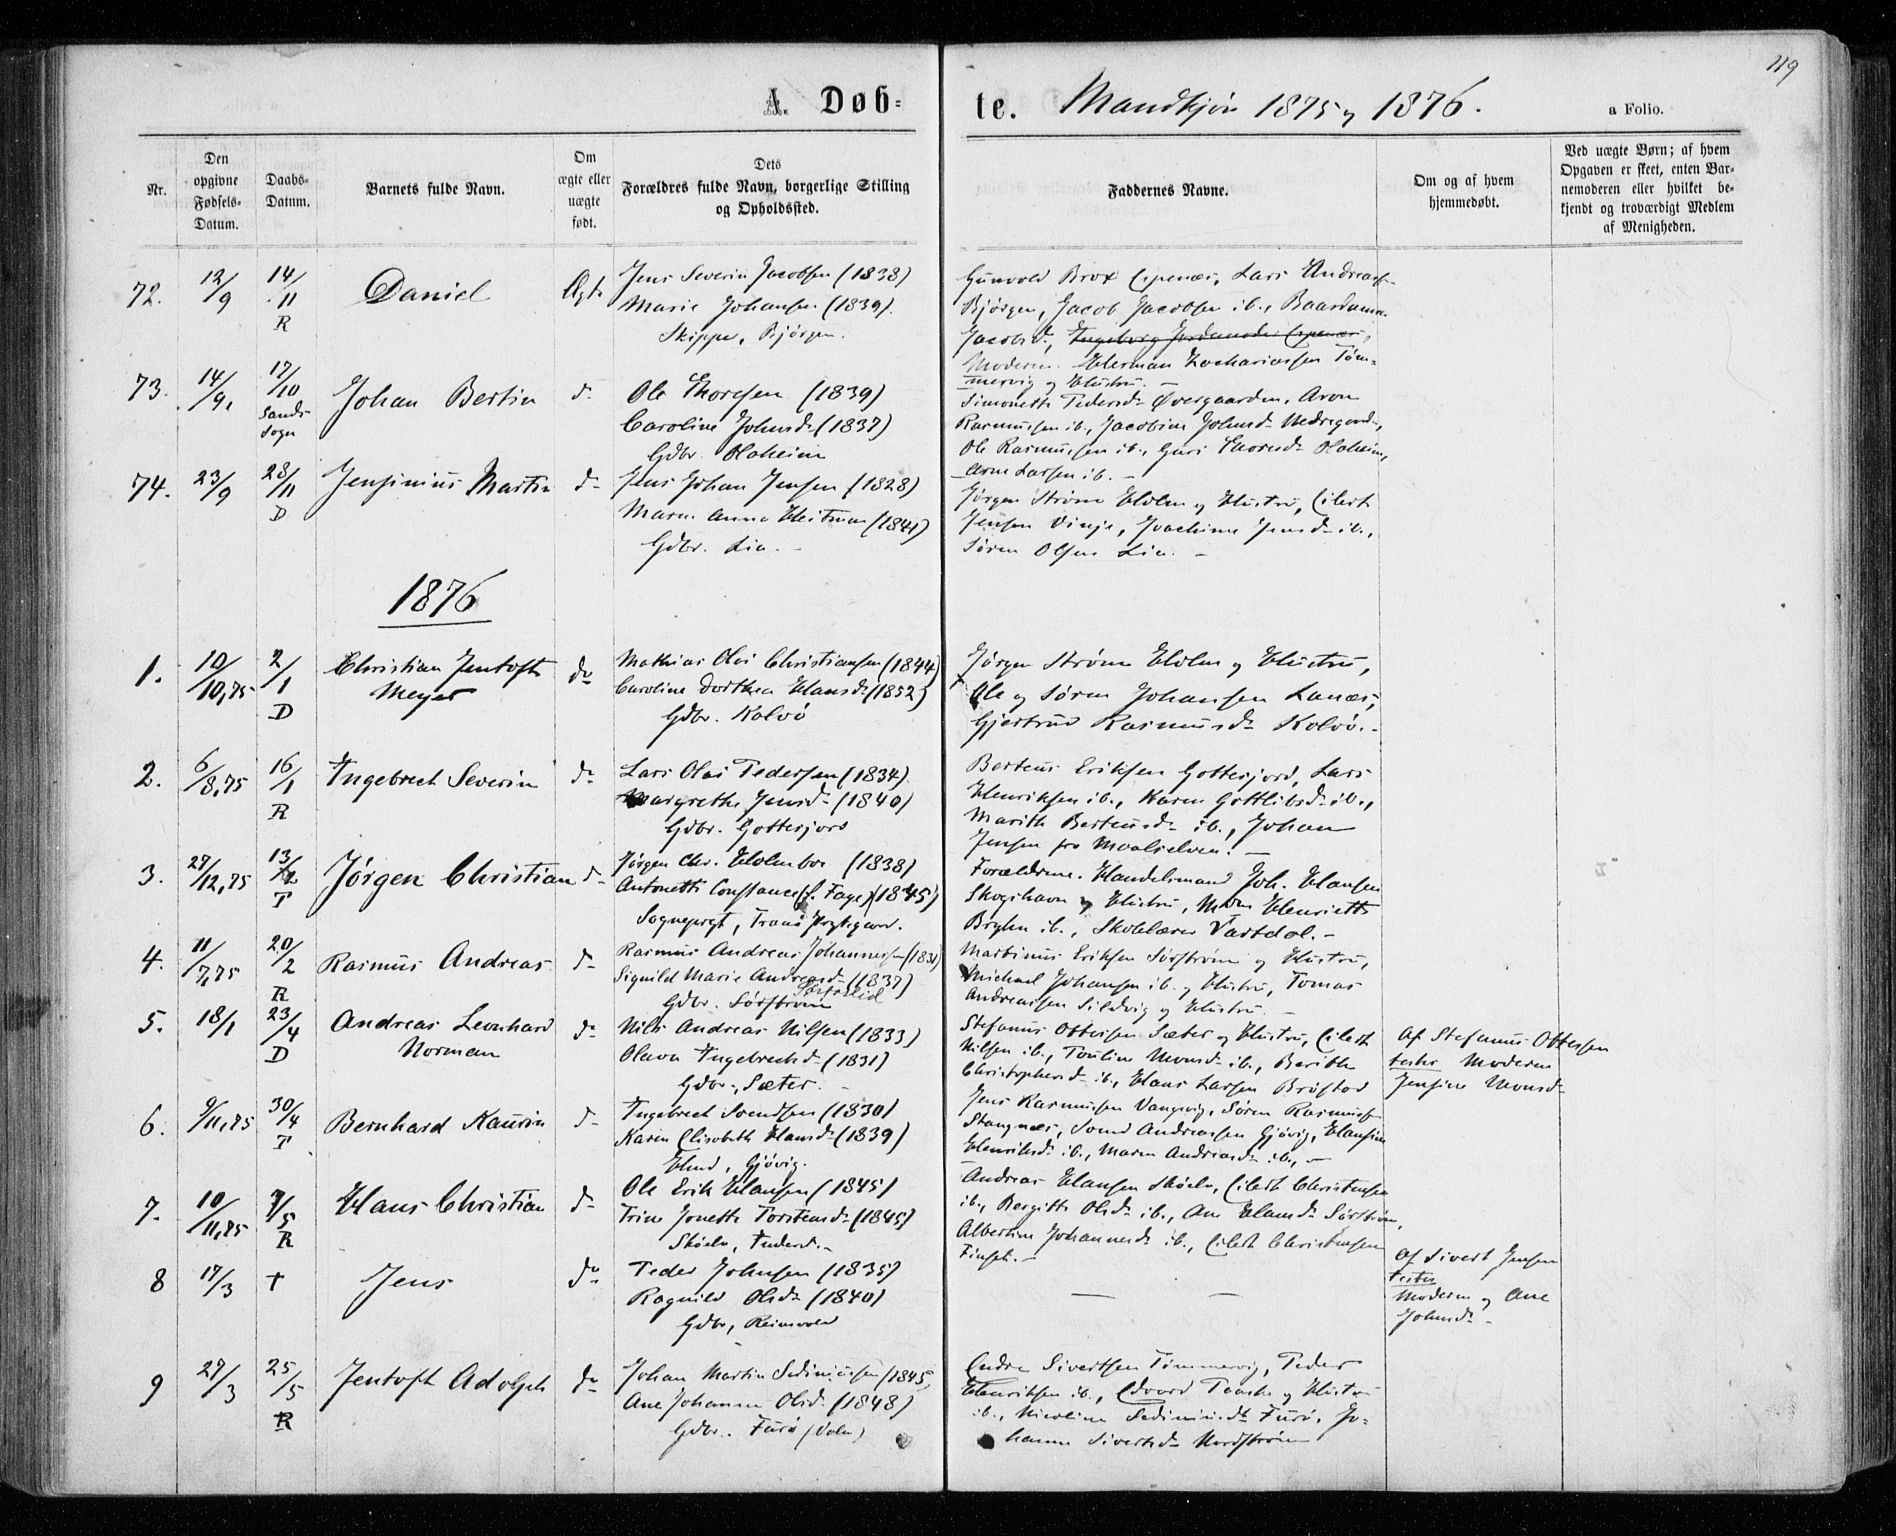 119
A. Døb-
te. Mandkjøn 1875 og 1876.
a Folio.
Nr.
Den
opgivne
Fødsels-
Datum.
Daabs-
Datum.
Barnets fulde Navn.
Om
ægte eller
uægte
født.
Dets
Forældres fulde Navn, borgerlige Stilling
og Opholdssted.
Faddernes Navne.
Om og af hvem
hjemmedøbt.
Ved uægte Børn; af hvem
Opgaven er skeet, enten Bar-
nemoderen eller hvilket be-
kjendt og troværdigt Medlem
af Menigheden.
72.
12/9
14/11
R
Daniel
Ægte
Jens Severin Jacobsen (1838)
Marie Johansen (1839).
Skipper, Bjørgen.
Gunvold Brox Espenæs, Lars Andreass.
Bjørgen, Jacob Jacobsen ib.,
Jacobsd.,
Moderen. Herman Zachariassen Tøm-
mervig og Hustru. –
73.
14/9.
17/10
Sands
Sogn
Johan Bertin
do
Ole Thoresen (1839)
Caroline Johnsd. (1837)
Gdbr. Olaheim
Simonette Pedersd. Øvergaarden, Aron
Rasmussen ib., Jacobine Johnsd. Nedregaard,
Ole Rasmussen ib., Guri Thoresd. Olaheim,
Arne Larsen ib. –
74.
23/9
28/11
D
Jensinius Martin
do
Jens Johan Jensen (1828)
Maren Anna Heitman (1841)
Gdbr. Lia. –
Jørgen Strøm Holm og Hustru, Eilert
Jensen Vinje, Joachime Jensd. ib.,
Søren Olsen Lia. –
1876
1.
10/10,75
2/1
D
Christian Jentoft
Meyer
do
Mathias Olai Christiansen (1844)
Caroline Dorthea Hansd. (1852)
Gdbr. Kalvø
Jørgen Strøm Holm og Hustru,
Ole og Søren Johansen Lanæs,
Gjertrud Rasmusd. Kalvø. –
2.
6/8,75
16/1
R
Ingebrect Severin
do
Lars Olai Pedersen (1834)
Margrethe Jensd. (1840)
Gdbr. Gottesjord
Berteus Eriksen Gottesjord, Lars
Henriksen ib., Karen Gottlibsd. ib.,
Marith Berteusd. ib., Johan
Jensen fra Maalselven. –
3.
27/12,75
13/2
T
Jørgen Christian
do
Jørgen Chr. Holmboe (1838)
Antonette Constance (f. Fage) (1845)
Sognepræst, Tranø Prestegaard.
Forældrene. Handelsmand Joh. Hansen
Skogshavn og Hustru, Henriette
Bryhn ib., Skolelærer Vartdal. –
4.
11/7,75
20/2
R
Rasmus Andreas
do
Rasmus Andreas Johannessen (1831)
Signild Marie Andreasd. (1837)
Gdbr. Sørstrøm
Martinus Eriksen Sørstrøm og Hustru,
Michael Johansen ib. og Hustru, Tomas
Andreassen Sildvig og Hustru. –
5.
18/1
23/4
D
Andreas Leonhard
Norman
do
Nils Andreas Nilsen (1833)
Olava Ingebrectsd. (1831)
Gdbr., Sæter. –
Stefanus Ottesen Sæter og Hustru, Eilert
Nilsen ib., Pauline Monsd. ib., Berithe
Christophersd. ib., Hans Larsen Brøstad
Af Stefanus Ottesen
testes Moderen
Jensine Monsd.
6.
9/11,75
30/4
T
Bernhard Kaurin
do
Ingebrect Svendsen (1830)
Karen Elisabeth Hansd. (1839)
Hmd, Gjøvig.
Jens Rasmussen Vangsvig, Søren Rasmuss.
Stangnæs, Svend Andreassen Gjøvig, Hansine
Henriksd. ib., Maren Andreasd. ib., –
7.
10/11,75
7/5
R
Hans Christian
do
Ole Erik Hansen (1845)
Trine Jonette Torstensd. (1845)
Skøeln, Inderst. –
Andreas Hansen Skøeln, Eilert Christensen
ib., Bergitte Olsd. ib., Ane Hansd. Sørstrøm,
Albertine Johannesd. ib., Eilert Christensen
Finset. –
8
17/3
†
Jens
do
Peder Johnsen (1835)
Ragnild Olsd. (1840)
Gdbr, Reinvold
– –
Af Sivert Jensen
testes
Moderen og Ane
Johnsd. –
9
27/3
25/5
R
Jentoft Adolph
do
Johan Martin Sediniussen (1845)
Ane Johanna Olsd. (1848)
Gdbr. Furø (Voln)
Endre Sivertsen Tømmervig, Peder
Henriksen ib., Edvard Taaske og Hustru
ib., Nicoline Sediniusd. Furø, Jo-
hanna Sivertsd. Nordstrøm